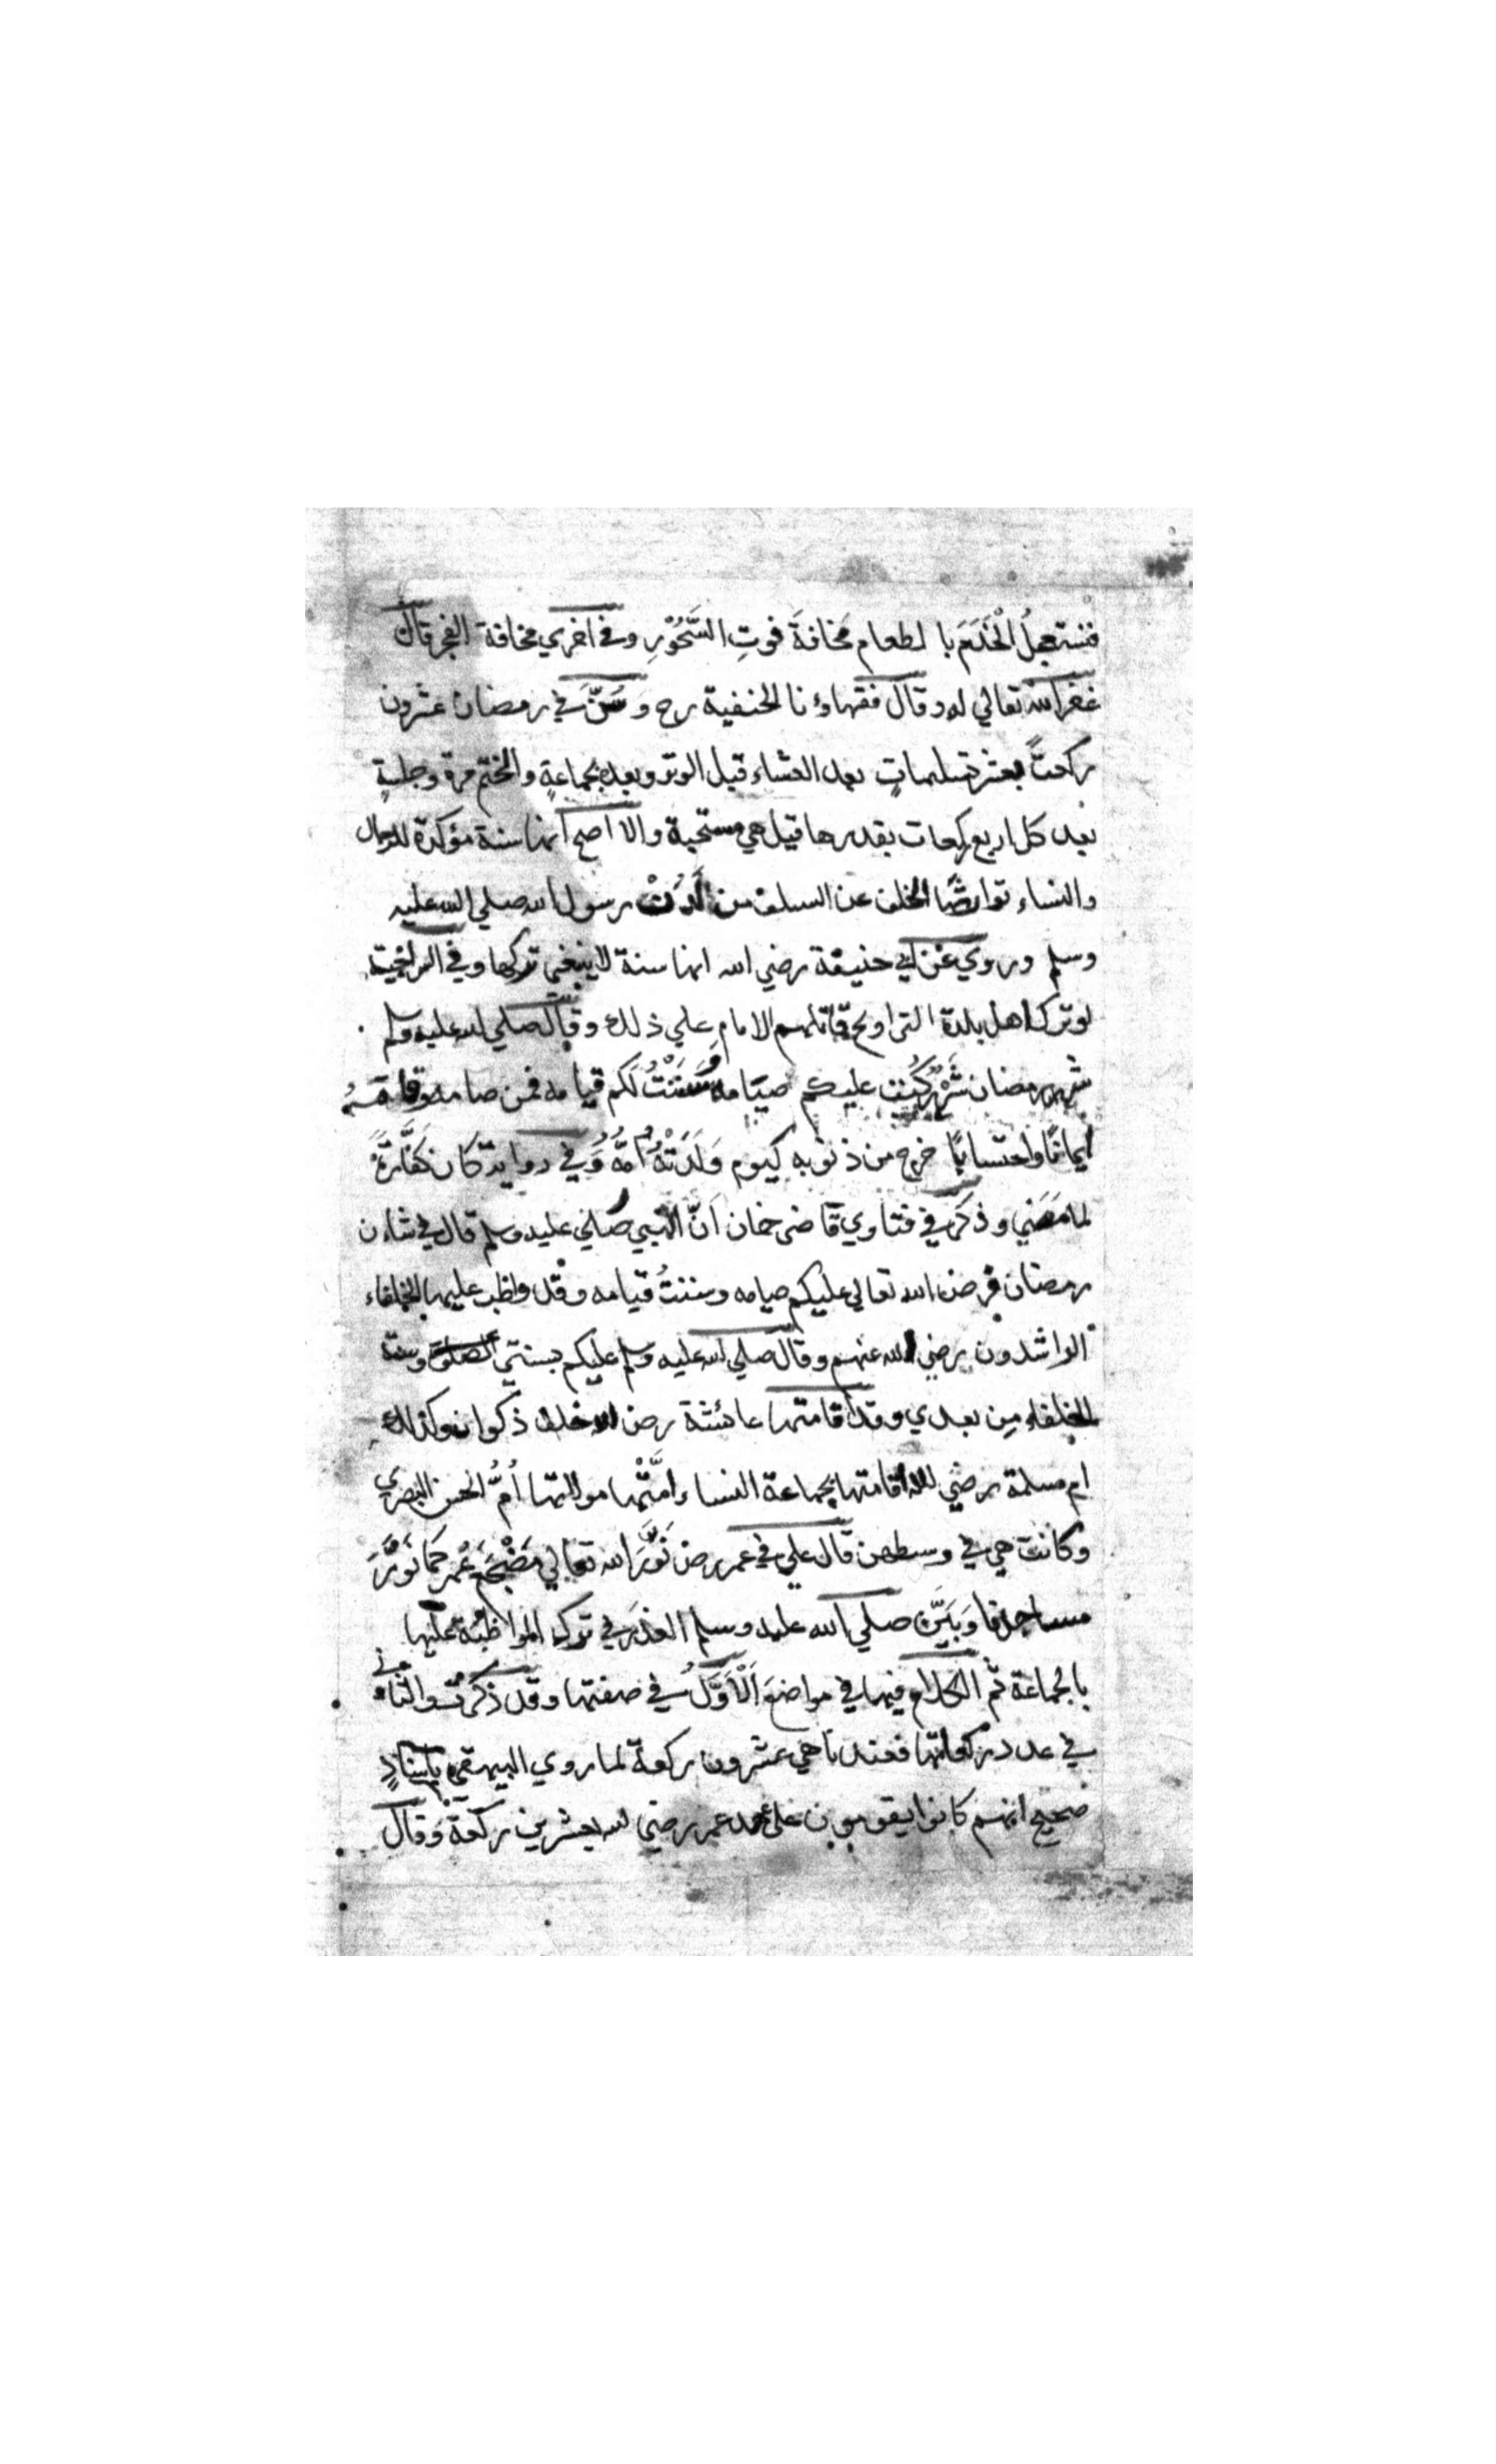 فنستعجلُ الْخَدَمَ بالطعام مخافةَ فوتِ السَّحُوْرِ وفي اخري مخافة الفجر قال
غفر الله تعالي له وقال فقهاؤنا الحنفية رح وَسُنَّ في رمضان عشرون
ركعتً بعشر تسليماتٍ بعد العشاء قبل الوتر وبعده بجماعةٍ والختم مرة وجلسةٍ
بعد كل اربع ركعات بقدرها قيل هي مستحبة والاصح انها سنة مؤكدة للرجال
والنساء توارثها الخلف عن السلف من لَدُنْ رسول الله صلي الله عليه
وسلم وروي عن ابي حنيفة رضي الله انها سنة لا ينبغي تركها وفي
لو ترك اهل بلدة التراويح قاتلهم الامام علي ذلك وقال صلي الله عليه وسلم
شهر رمضان شَهْرٌ كُتِبَ عليكم صيَامه وَسَنَنْتُ لَكم قيامه فمن صامه وقامَهُ
ايمانًا واحتسابًا خرج من ذنوبه كيوم وَلَدَتْهُ اُمُّهُ وَفي رواية كان كَفَّارَةً
لما مَضَي وذكر في فتاوي قاضي خان اَنَّ النبي صلي عليه وسلم قال في شان
رمضان فرض الله تعالي عليكم صيامه وسننتُ قيامه وقد واظب عليها الخلفاء
الراشدون رضي الله عنهم وقال صلي الله عليه وسلم عليكم بسنتي وسنة
الخلفاء مِن بعدي وقد اقامتها عائشة رض الله خلف ذكوان وكذلك
ام مسلمة رضي الله اقامتها بجماعة النساء وامَّتْها مولاتها اُمُّ الحسن البصري
وكانت هي في وسطهن قال علي في عمر رض نَوَّرَ الله تعالي مَضْجَعَ عُمر كَمَا نَوَّرَ
مساجدنا وَبَيَّنَ صلي الله عليه وسلم العذرَ في ترك المواظبة عليها
بالجماعة ثم الكلام فيها في مواضعَ اَلْاَوَّلُ في صفتها وقد ذكرتُ والثاني
في عدد ركعاتها فعندنا هي عشرون ركعة لما روي البيهقي باِسنادٍ
صحيح انهم كانوا يقومون علي عهد عمر رضي الله بعشرين ركعةً وقال